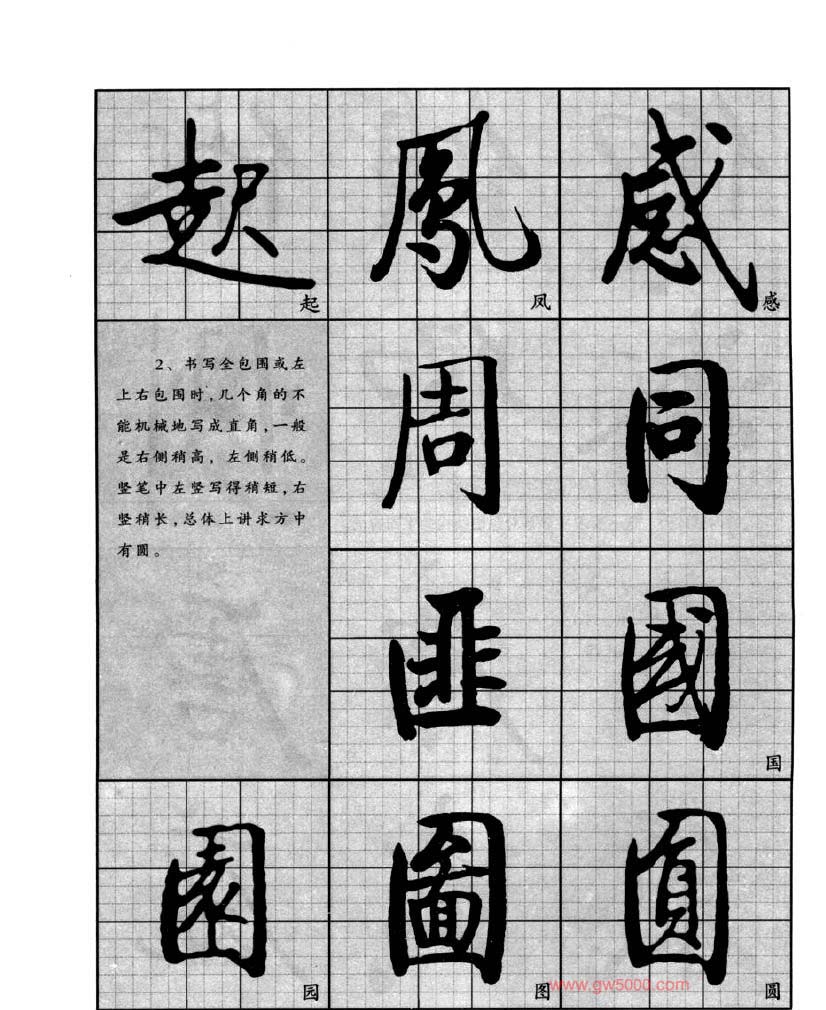 起 鳳 感
起 凤 感
2、书写全包围或左
上右包围时,几个角的不
能机械地写成直角,一般
是右侧稍高，左侧稍低。
竖笔中左竖写得稍短,右
竖稍长,总体上讲求方中
有圆。
周 同
匪 國
国
園 圖 圓
园 图 圆
www.gw5000.com